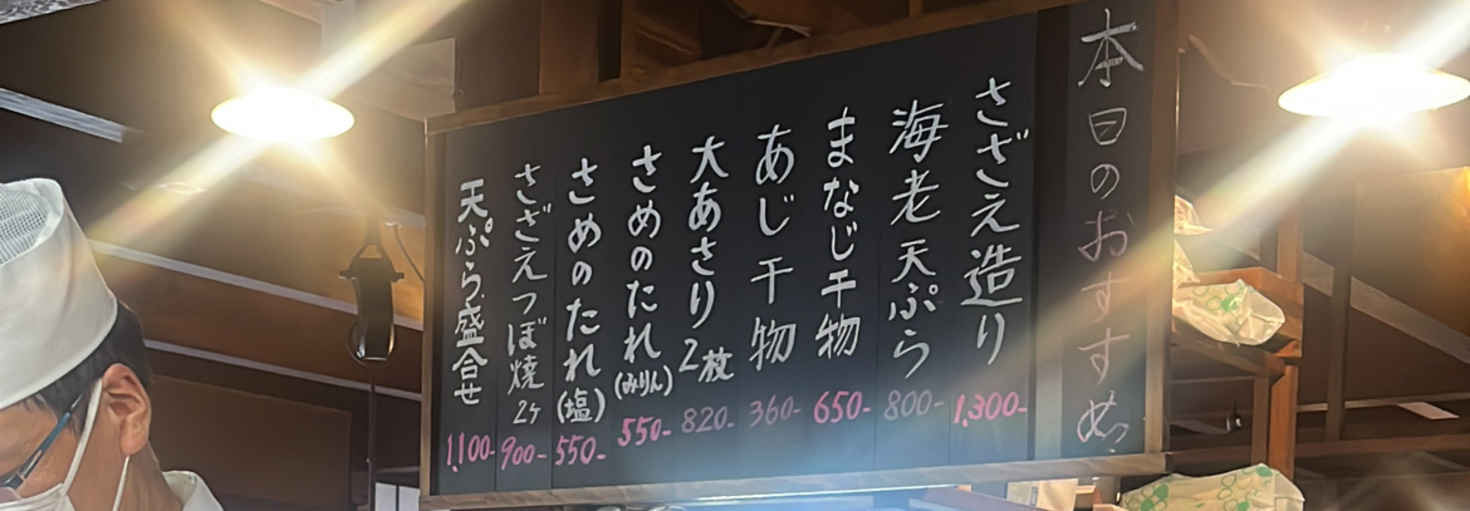 本日のおすすめ
さざえ造り 1,300-
海老天ぷら 800-
まなじ干物 650-
あじ干物 360-
大あさり2枚 820-
さめのたれ(みりん) 550-
さめのたれ(塩) 550-
さざえつぼ焼2ケ 900-
天ぷら盛合せ 1,100-